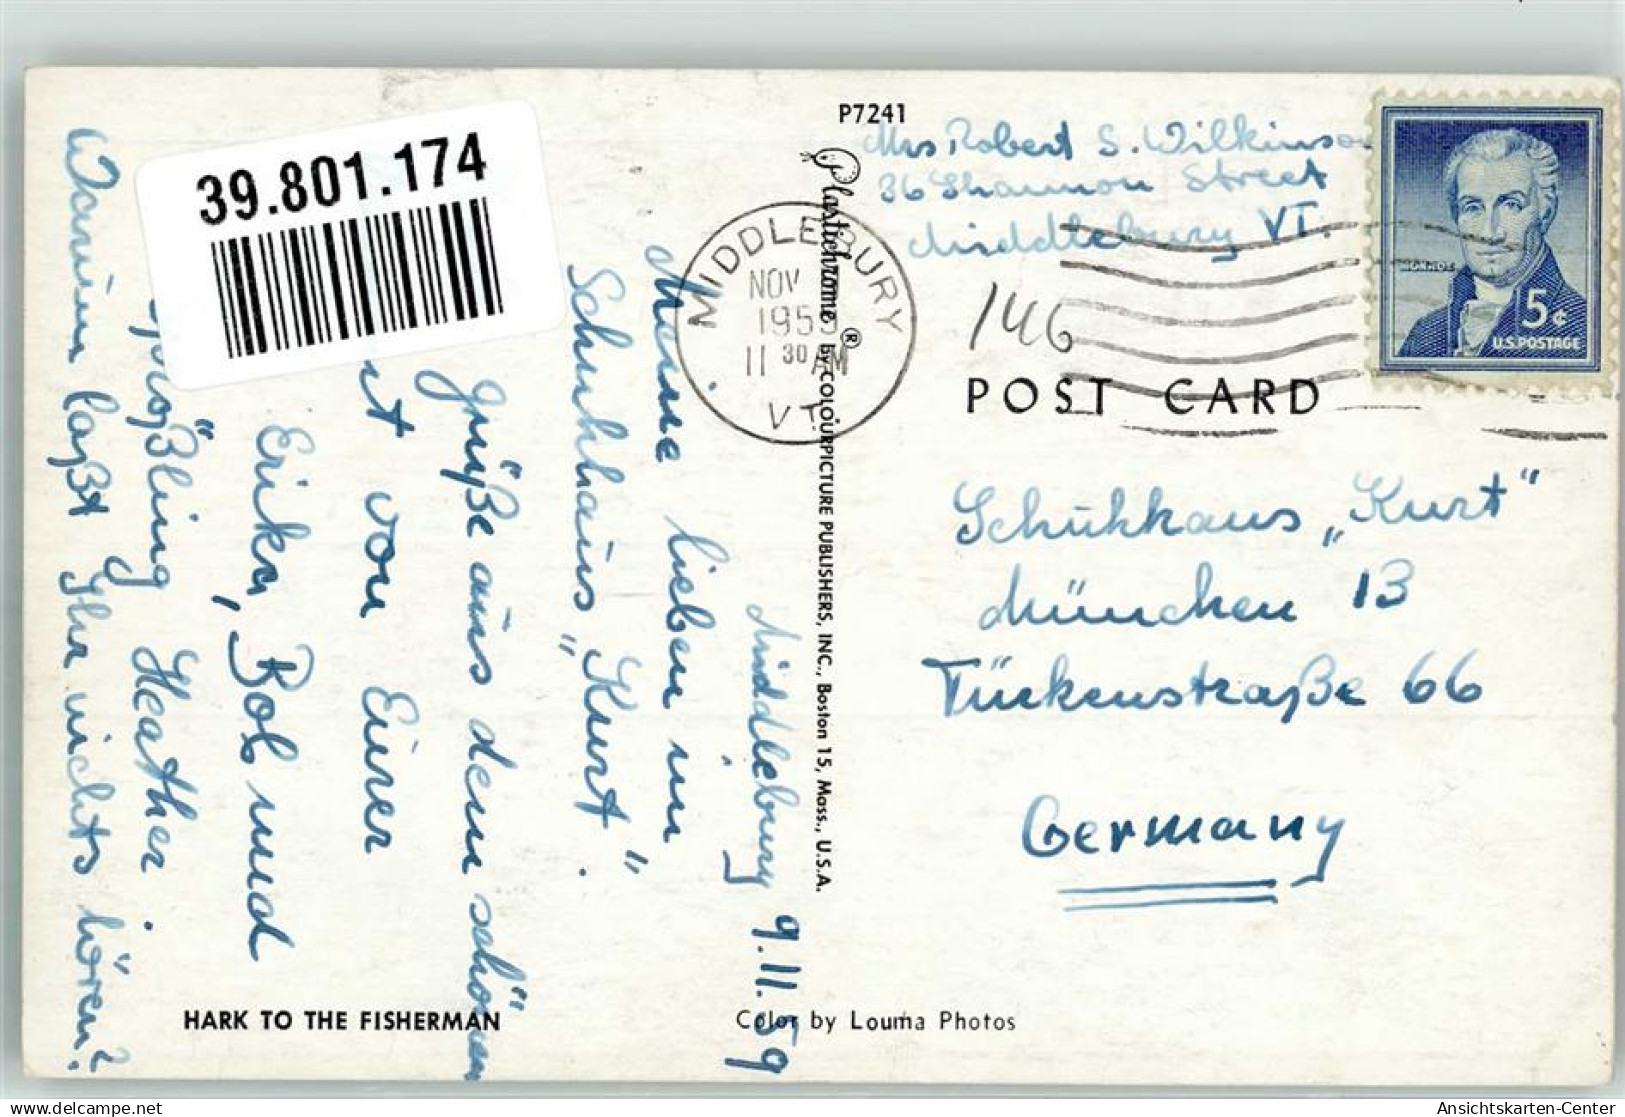 P7241
Mrs Robert S. Wilkinson
36 Shannon Street
Middlebury VT.
39.801.174
MIDDLEBURY
NOV
1959
11 30 AM
VT.
146
MONROE
5¢
U.S. POSTAGE
POST CARD
Plastichrome ® by COLOURPICTURE PUBLISHERS, INC., Boston 15, Mass., U.S.A.
Schuhhaus „Kurt"
München 13
Türkenstraße 66
Germany
Middlebury 9.11.59
Meine lieben im
Schuhhaus „Kurt".
Grüße aus dem schönen
von Eurer
Erika, Bob und
Sprößling Heather.
Warum laßt Ihr nichts hören?
HARK TO THE FISHERMAN
Color by Louma Photos
Ansichtskarten-Center